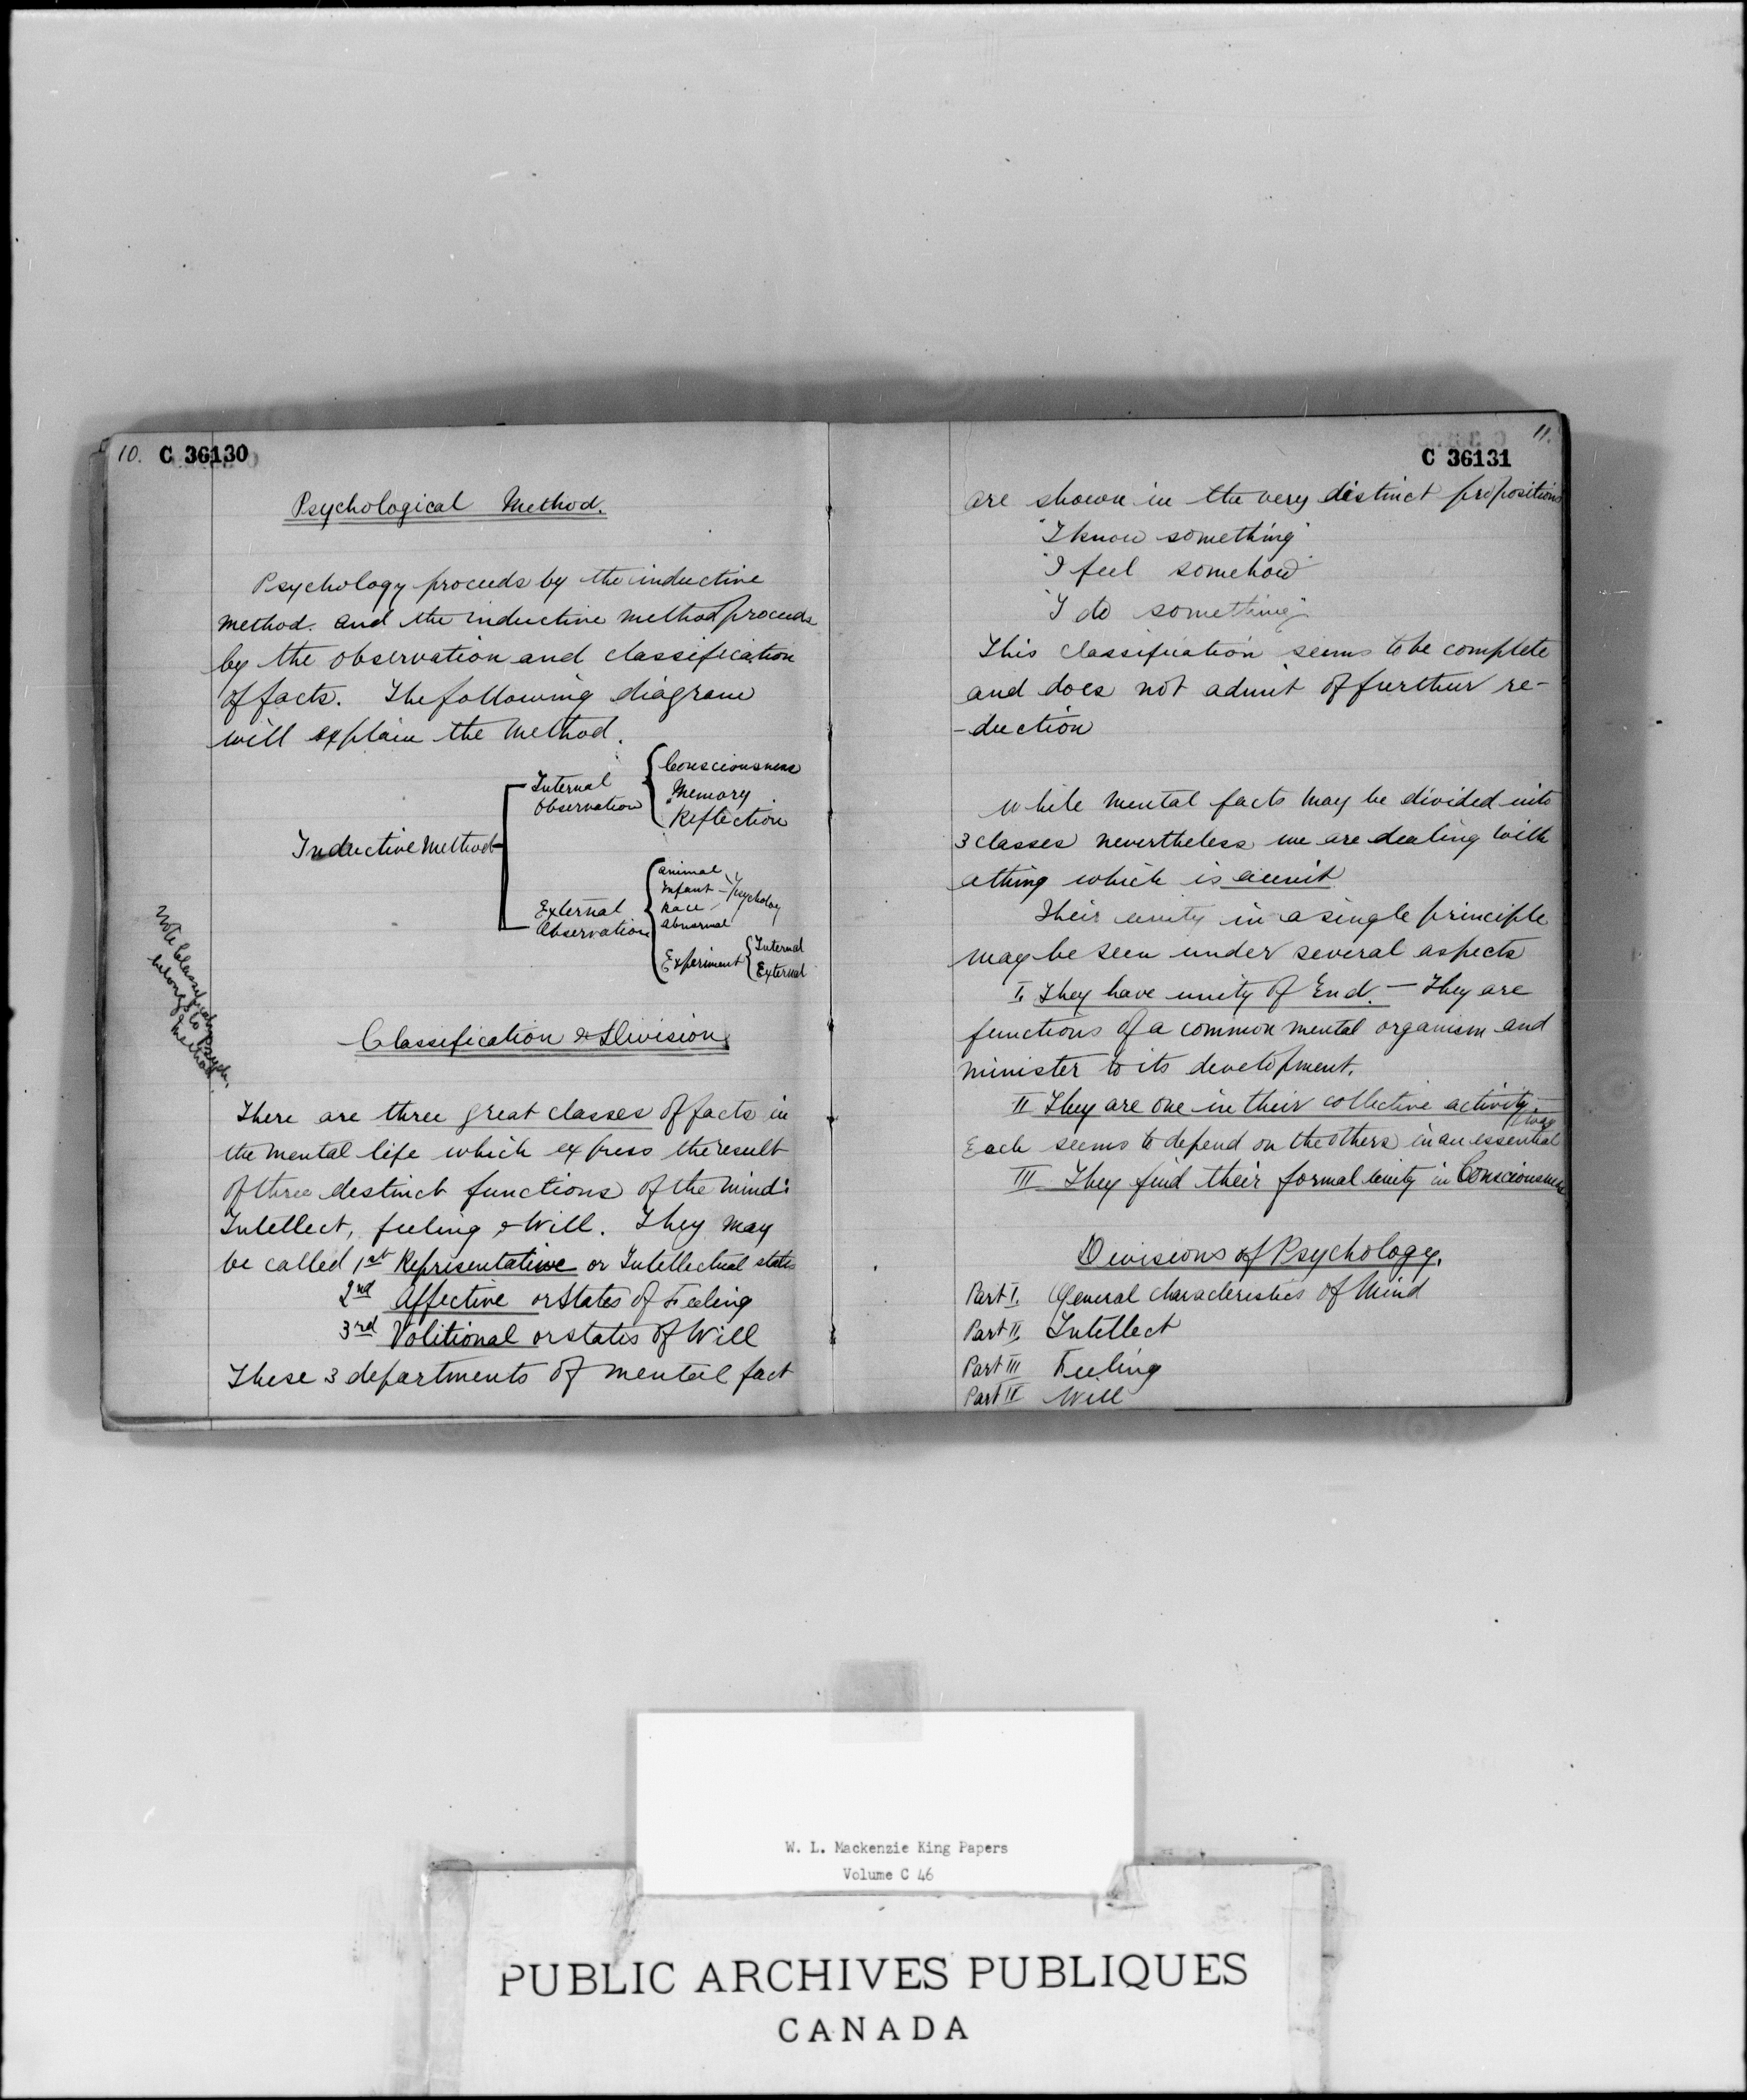 10. C 36130
Psychological Method.
Psychology proceeds by the inductive
method. and the inductive method proceeds
by the observation and classification
of facts. The following diagram
will explain the method.
Inductive Method
Internal
Observation
Consciousness
Memory
Reflection
External
Observation
Animal
Infant
Race
Abnormal
Psychology
Experiment
Internal
External
Note Classification
belongs to Psych.
method.
Classification & Division.
There are three great classes of facts in
the mental life which express the result
of three distinct functions of the mind:
Intellect, feeling & Will. They may
be called 1st Representative or Intellectual states
2nd Affective or States of Feeling
3rd Volitional or states of Will
These 3 departments of mental fact
11.
C 36131
are shown in the very distinct propositions
"I know something"
"I feel somehow"
"I do something"
This classification seems to be complete
and does not admit of further re-
-duction
While mental facts may be divided into
3 classes nevertheless we are dealing with
a thing which is a unit
Their unity in a single principle
may be seen under several aspects
I. They have unity of End. — They are
functions of a common mental organism and
minister to its development.
II They are one in their collective activity.—
Each seems to depend on the others in an essential way
III They find their formal unity in Consciousness
Divisions of Psychology.
Part I. General characteristics of Mind
Part II. Intellect
Part III Feeling
Part IV Will
W. L. Mackenzie King Papers
Volume C 46
PUBLIC ARCHIVES PUBLIQUES
CANADA